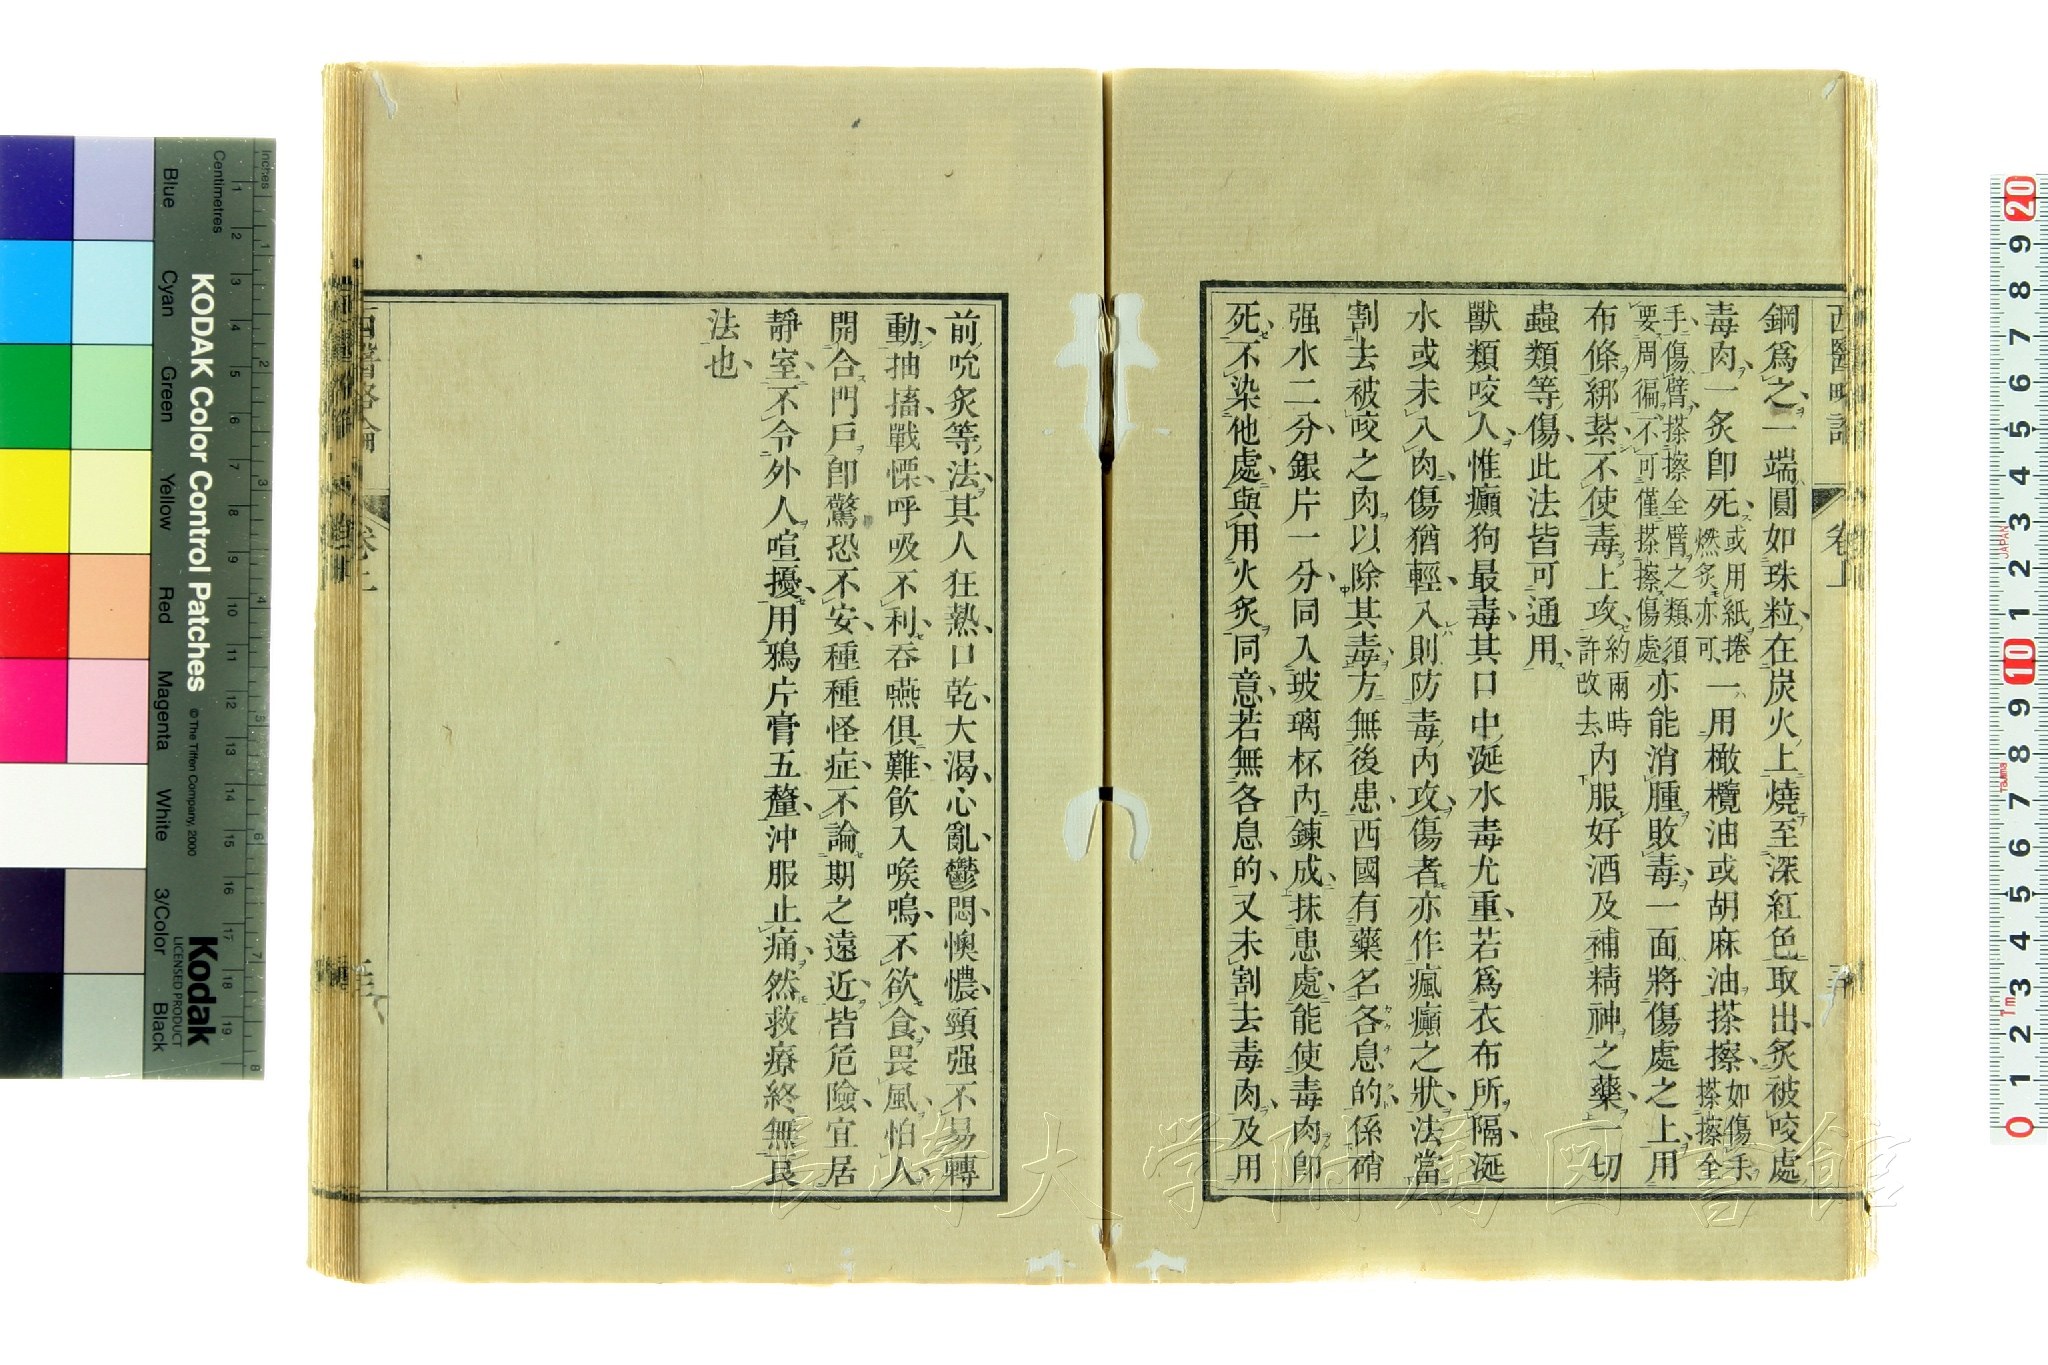 西醫略論 卷上
鋼爲之一端圓如珠粒在炭火上燒至深紅色取出炙被咬處
毒肉一炙卽死或用紙捲燃炙亦可一用橄欖油或胡麻油搽擦如傷手搽擦全
手傷臂搽擦全臂之類須要周徧不可僅搽擦傷處亦能消腫敗毒一面將傷處之上用
布條綁紮不使毒上攻約兩時許改去內服好酒及補精神之藥一切
蟲類等傷此法皆可通用
獸類咬人惟癲狗最毒其口中涎水毒尤重若爲衣布所隔涎
水或未入肉傷猶輕入則防毒內攻傷者亦作瘋癲之狀法當
割去被咬之肉以除其毒方無後患西國有藥名各息的係硝
强水二分銀片一分同入玻璃杯內鍊成抹患處能使毒肉卽
死不染他處與用火炙同意若無各息的又未割去毒肉及用
前吮炙等法其人狂熱口乾大渴心亂鬱悶懊憹頸强不易轉
動抽搐戰慄呼吸不利吞嚥俱難飮入喉鳴不欲食畏風怕人
開合門戶卽驚恐不安種種怪症不論期之遠近皆危險宜居
靜室不令外人喧擾用鴉片膏五釐沖服止痛然救療終無良
法也
西醫略論 卷上
KODAK Color Control Patches
© The Tiffen Company, 2000
Kodak
LICENSED PRODUCT
Inches
Centimetres
Blue Cyan Green Yellow Red Magenta White 3/Color Black
長崎大学附属図書館